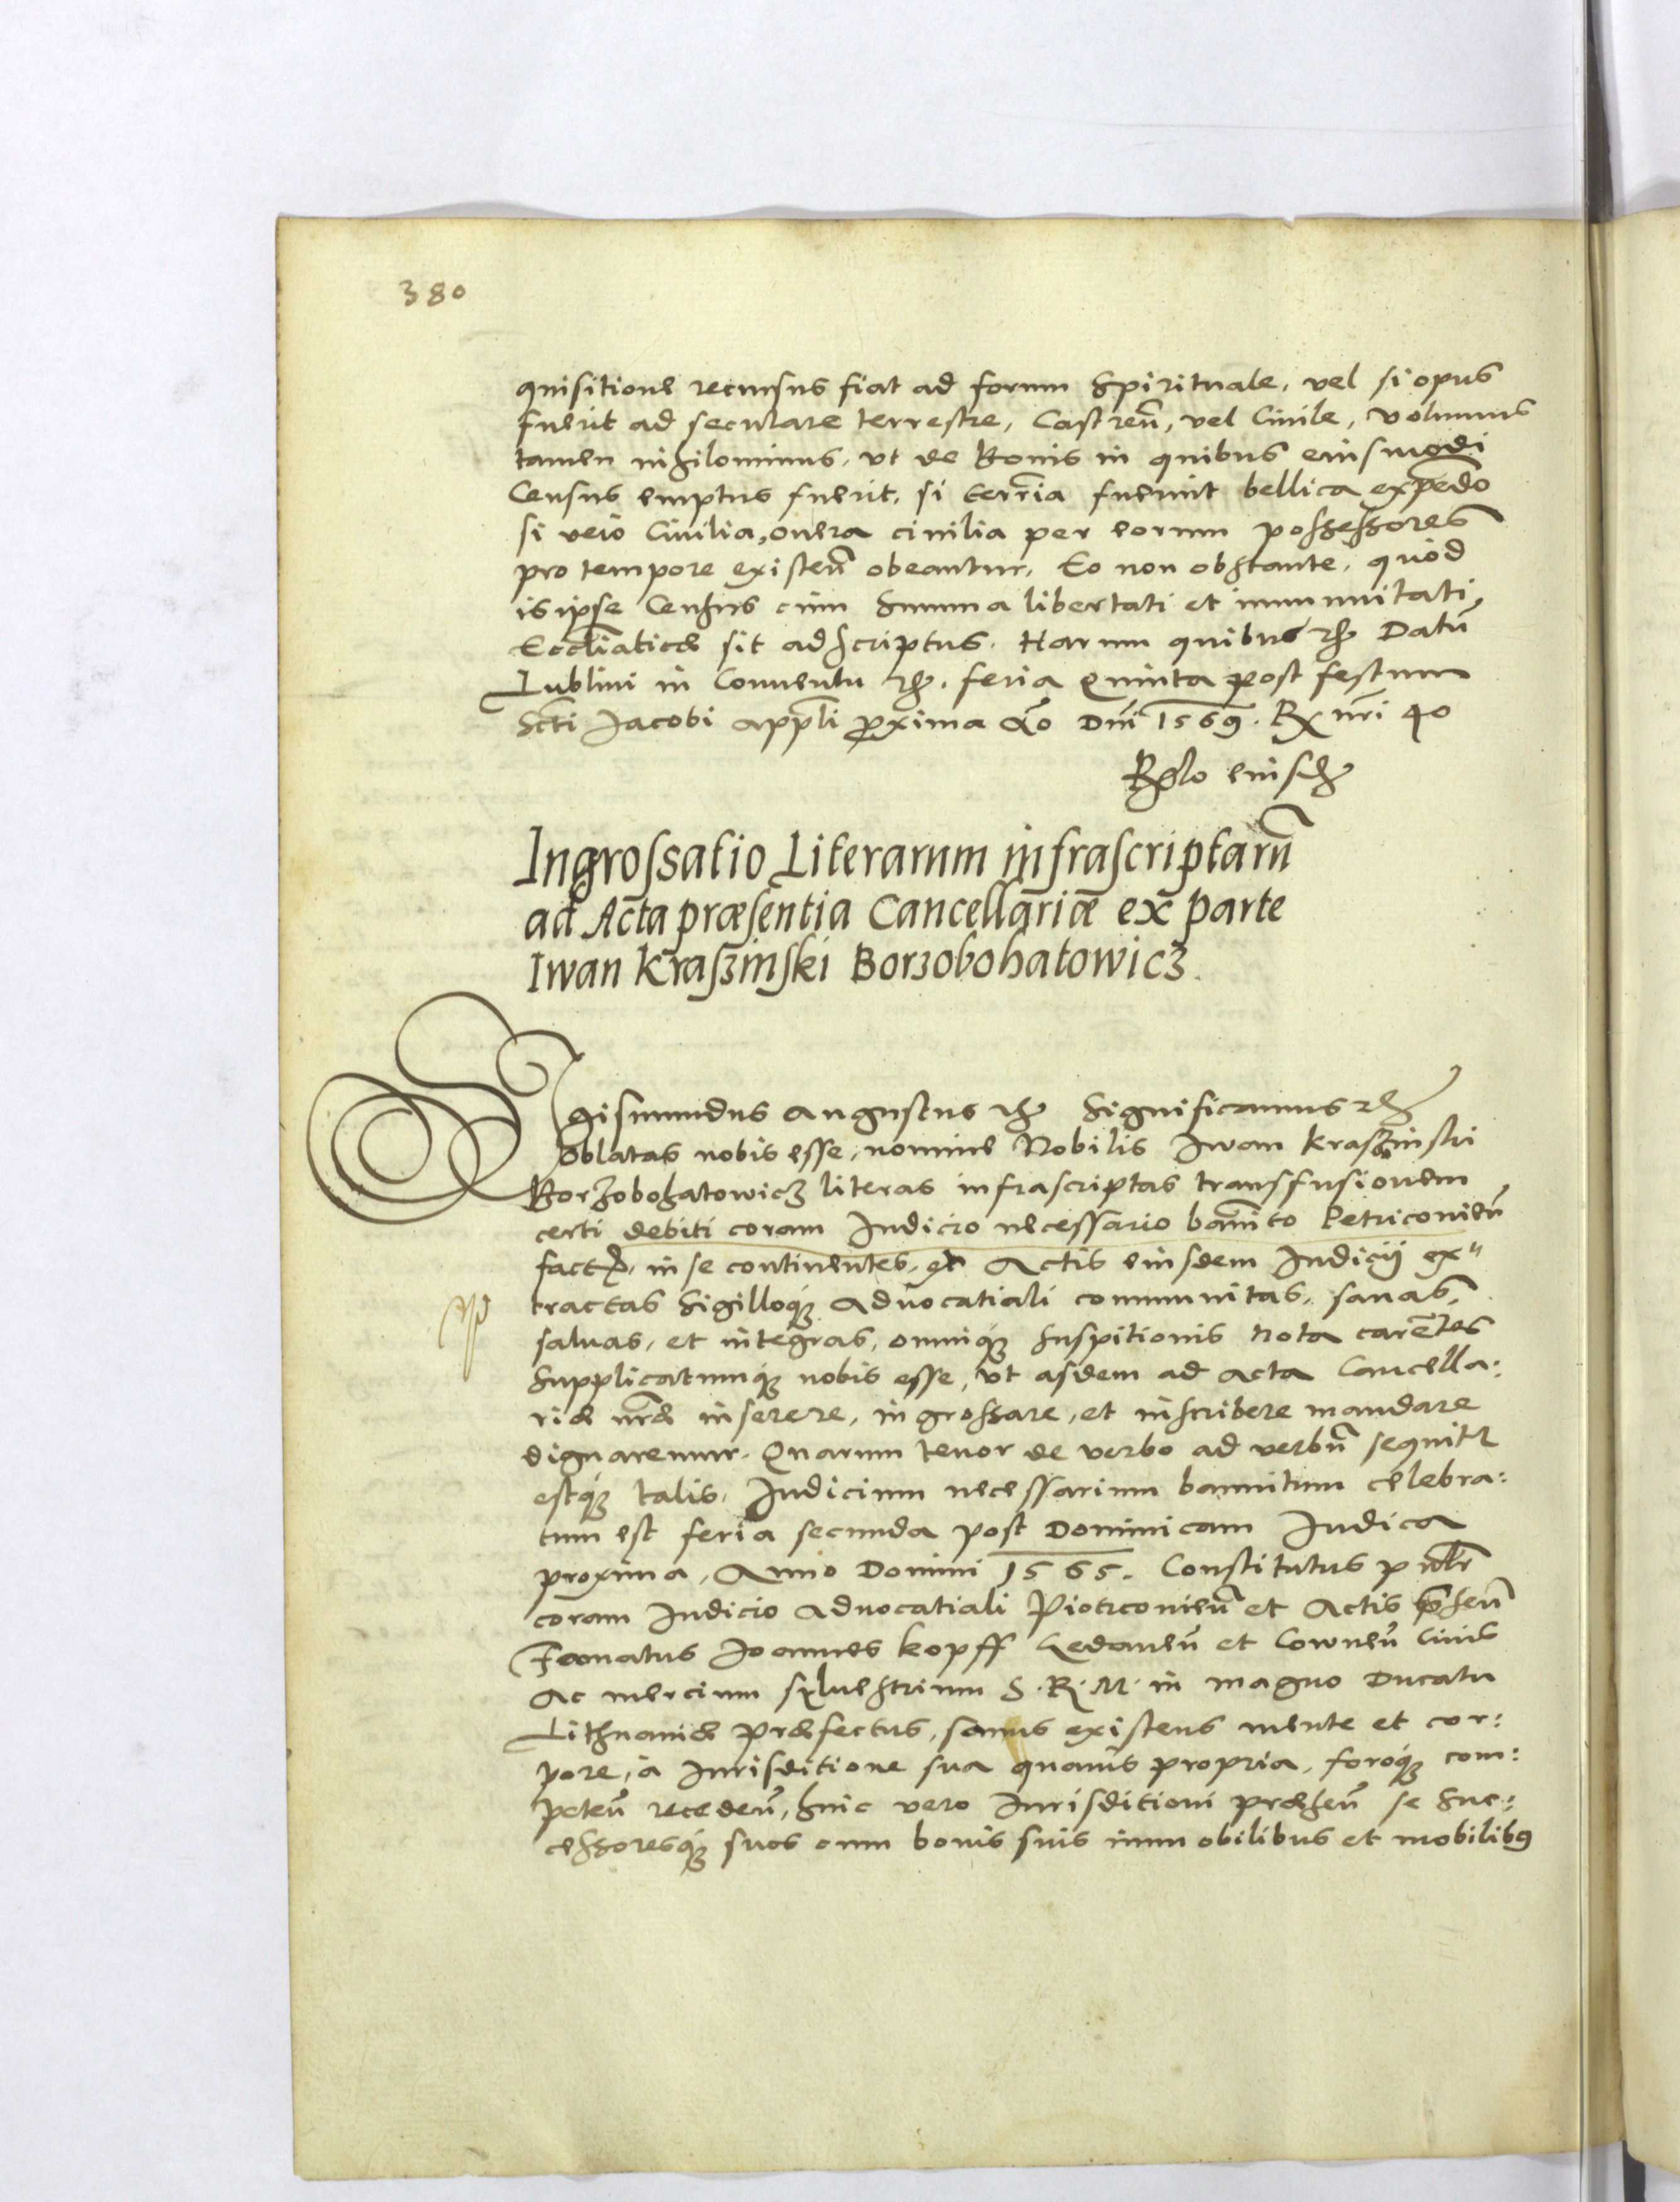 380
quisitione recursus fiat ad forum Spirituale, vel si opus
fuerit ad seculare terrestre, Castreñ, vel Ciuile, volumus
tamen nihilominus, vt de Bonis in quibus eiusmodi
Census emptus fuerit, si terria fuerint bellica expedo
si vero Ciuilia, onera ciuilia per eorum possessores
pro tempore existeñ obeantur, Eo non obstante, quod
is ipse Census cum Summa libertati et immunitati
Eccliaticæ sit adscriptus. Harum quibus etc Datũ
Lublini in Conuentu etc. feria Quinta post festum
Scti Jacobi Appli proxima Ao Dni 1569. R nri 40
Rglo eiusd
Ingrossatio Literarum infrascriptarũ
ad Acta præsentia Cancellariæ ex parte
Iwan Kraszinski Borzobohatowicz.
Sigismundus Augustus etc Significamus etc
Oblatas nobis esse, nomine Nobilis Iwan Kraszinski
Borzobohatowicz literas infrascriptas transfusionem
certi debiti coram Iudicio necessario bannito Petriconieñ
fact, in se continentes, et Actis eiusdem Iudicij ex"
tractas Sigilloq́ꝫ Aduocatiali communitas, sanas,
saluas, et integras, omniq́ꝫ Suspitionis nota carẽtes
Supplicatumq́ꝫ nobis esse, vt asdem ad acta Cancella:
riæ nræ inserere, ingrossare, et inscribere mandare
dignaremur. Quarum tenor de verbo ad verbũ sequitr
estq́ꝫ talis, Iudicium necessarium bannitum celebra:
tum est feria secunda post Dominicam Iudica
proxima, Anno Domini 1565. Constitutus pnlr
coram Iudicio Aduocatiali Piotrconieñ et Actis pñseñ
Famatus Joannes Kopff Gedaneñ et Cowneñ Ciuis
Ac mercium syluestrium S. R. M. in magno Ducatu
Lithuaniæ Præfectus, sanus existens mente et cor:
pore, à Iurisditione sua quauis propria, foroq́ꝫ com:
peteñ recedeñ, huic vero Iurisditioni præseñ se Suc:
cessoresq́ꝫ suos cum bonis suis immobilibus et mobilibꝰ